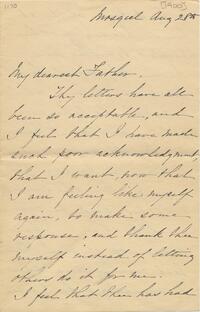 1170
[1900]
Mosgiel Aug 28th
My dearest Father.
Thy letters have all
been so acceptable, and
I feel that I have made
such poor acknowledgment,
that I want now that
I am feeling like myself
again, to make some
response, and thank thee
myself instead of letting
others do it for me.
I feel that thee has had